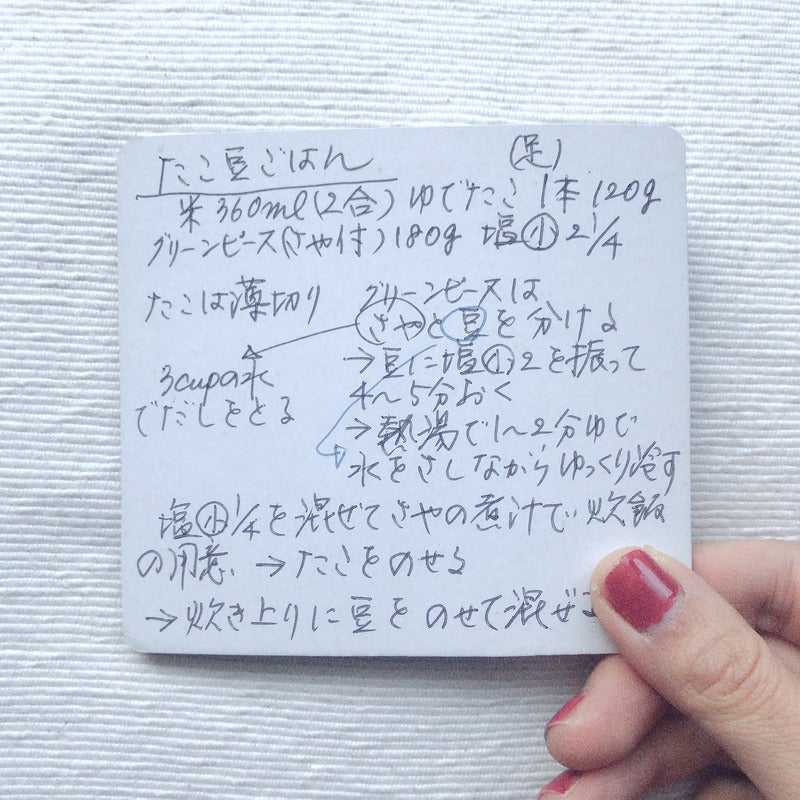 たこ豆ごはん
(足)
米360ml(2合)ゆでたこ1本120g
グリーンピース(さや付)180g 塩小2 1/4
たこは薄切り
グリーンピースは
さやと豆を分ける
→豆に塩小2を振って
4〜5分おく
→熱湯で1〜2分ゆで
水をさしながらゆっくり冷す
3cupの水
でだしをとる
塩小1/4を混ぜてさやの煮汁で炊飯
の用意、→たこをのせる
→炊き上りに豆をのせて混ぜる